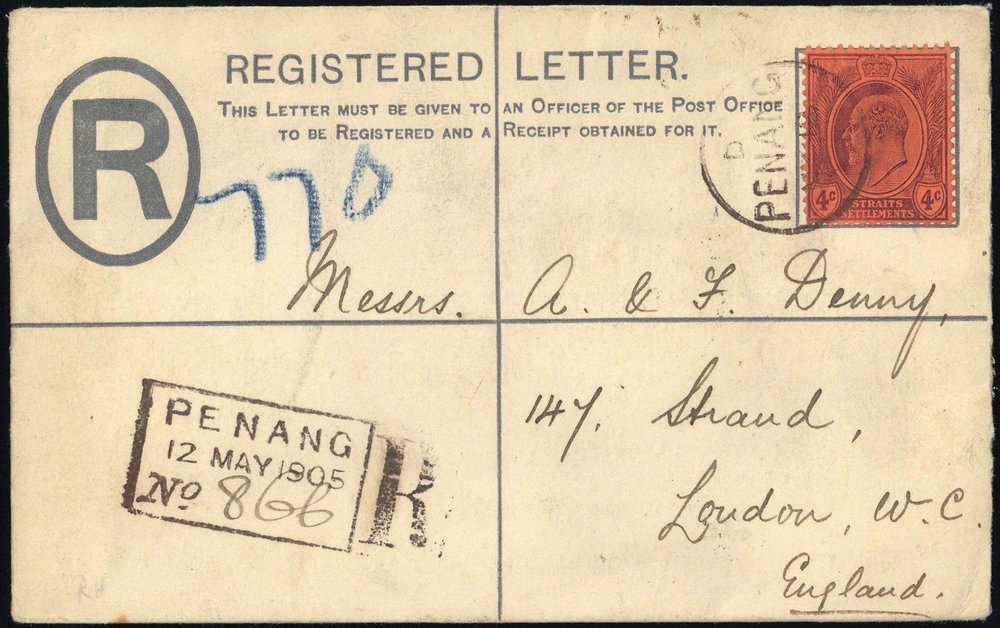 R
REGISTERED LETTER.
THIS LETTER MUST BE GIVEN TO AN OFFICER OF THE POST OFFICE
TO BE REGISTERED AND A RECEIPT OBTAINED FOR IT.
PENANG
D
PENANG
4c 4c
STRAITS
SETTLEMENTS
770
Messrs. A. & F. Denny,
147, Strand,
London, W.C.
England.
PENANG
12 MAY 1905
No 866
R
RH